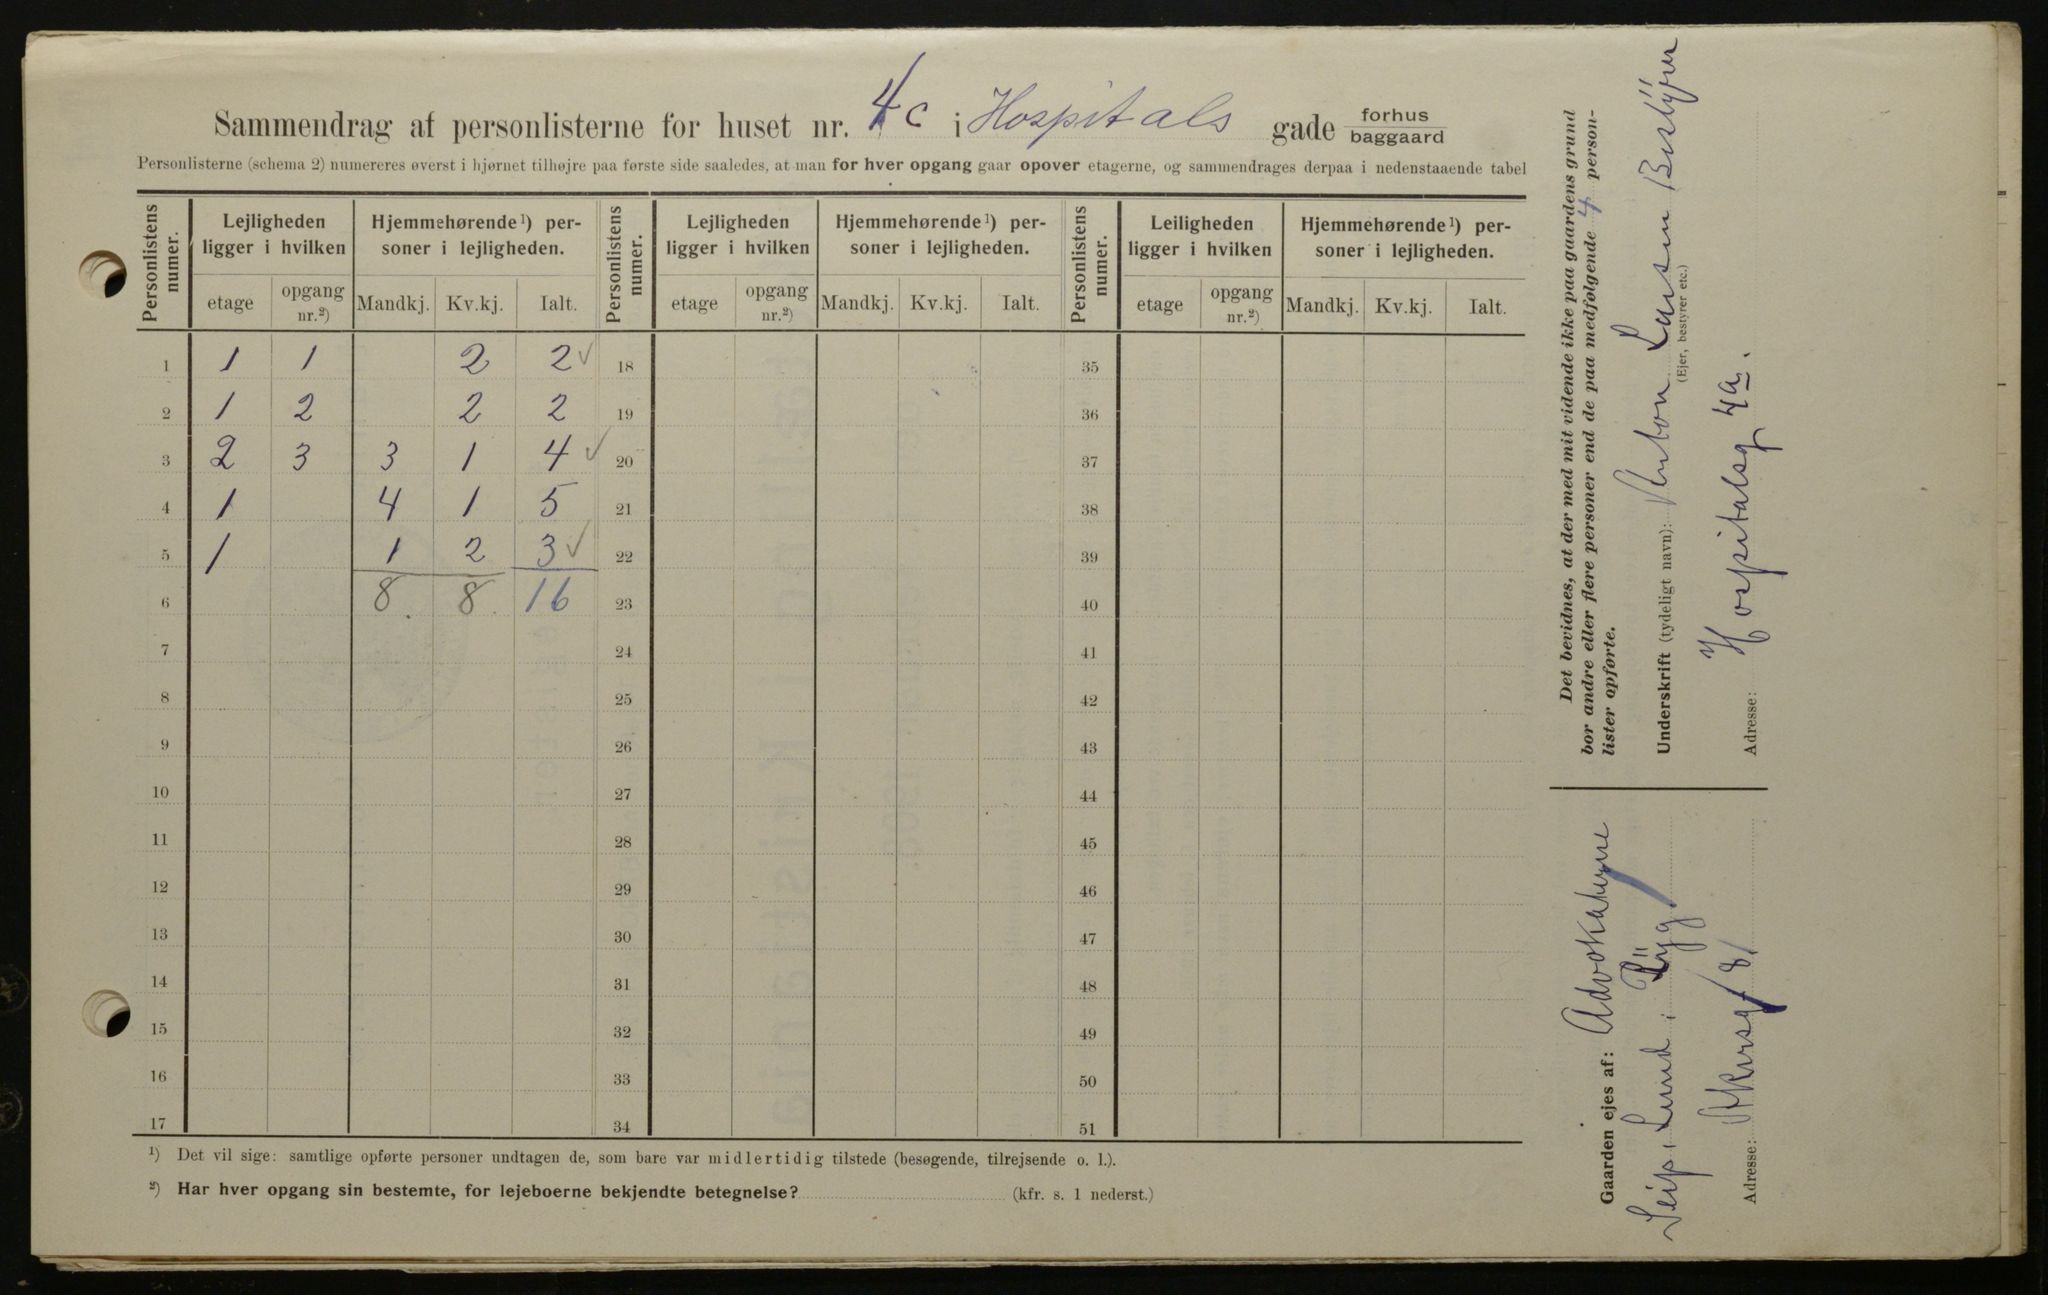 Sammendrag af personlisterne for huset nr. 4c i Hospitals gade forhus baggaard
Personlisterne (schema 2) numereres øverst i hjørnet tilhøjre paa første side saaledes, at man for hver opgang gaar opover etagerne, og sammendrages derpaa i nedenstaaende tabel
Personlistens numer.
Lejligheden ligger i hvilken
Hjemmehørende ¹) personer i lejligheden.
etage
opgang nr.²)
Mandkj.
Kv.kj.
Ialt.
Personlistens numer.
Lejligheden ligger i hvilken
Hjemmehørende ¹) personer i lejligheden.
etage
opgang nr.²)
Mandkj.
Kv.kj.
Ialt.
Personlistens numer.
Leiligheden ligger i hvilken
Hjemmehørende ¹) personer i lejligheden.
etage
opgang nr.²)
Mandkj.
Kv.kj.
Ialt.
1 1 1 2 2 ✓ 18 35
2 1 2 2 2 19 36
3 2 3 3 1 4 ✓ 20 37
4 1 4 1 5 21 38
5 1 1 2 3 ✓ 22 39
6 8 8 16 23 40
7 24 41
8 25 42
9 26 43
10 27 44
11 28 45
12 29 46
13 30 47
14 31 48
15 32 49
16 33 50
17 34 51
¹) Det vil sige: samtlige opførte personer undtagen de, som bare var midlertidig tilstede (besøgende, tilrejsende o. l.).
²) Har hver opgang sin bestemte, for lejeboerne bekjendte betegnelse? (kfr. s. 1 nederst.)
Det bevidnes, at der med mit vidende ikke paa gaardens grund
bor andre eller flere personer end de paa medfølgende 4 person-
lister opførte.
Underskrift (tydeligt navn): Anton Larsen Bestÿrer
(Ejer, bestyrer etc.)
Adresse: Hospitalsg 4a.
Gaarden ejes af: Advokaterne
Seip, Lund i Rÿg.
Adresse: Akersg 8